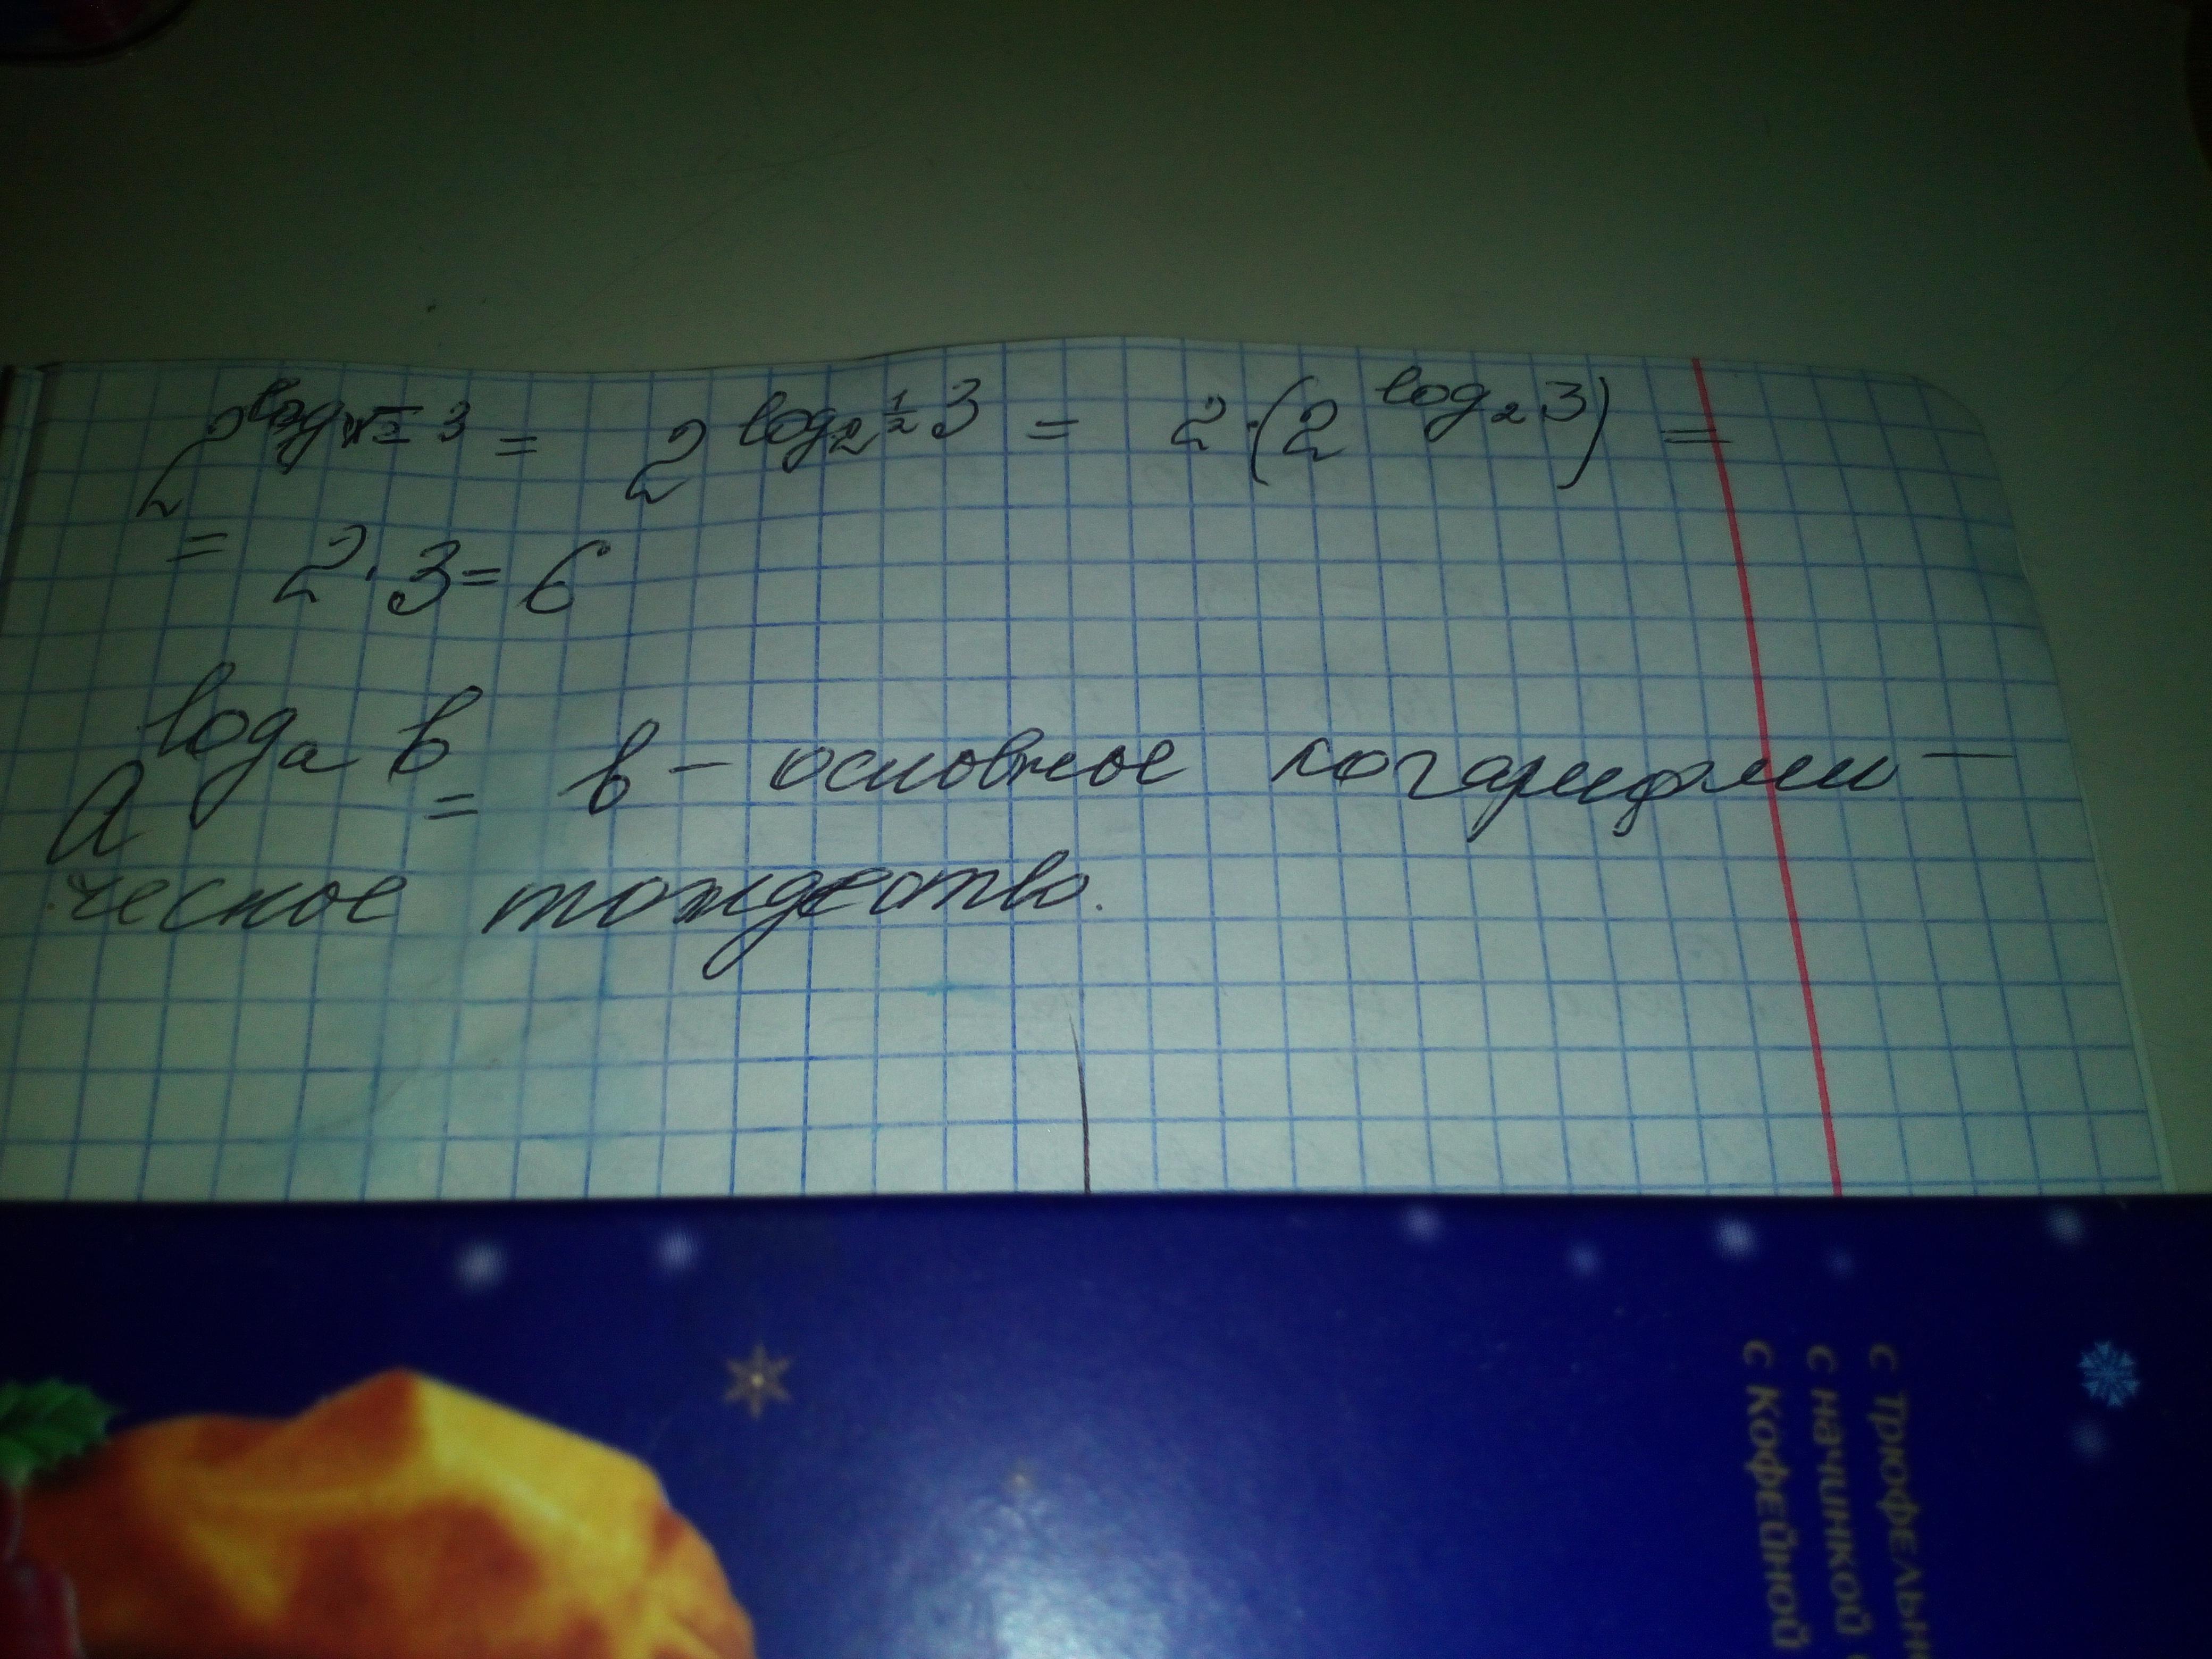 2^{log_{√2} 3} = 2^{log_{2^{1/2}} 3} = 2·(2^{log_2 3}) =
= 2·3=6
a^{log_a b} = b – основное логарифми–
ческое тождество.
с Трюфельн
с начинкой
с Кофейной